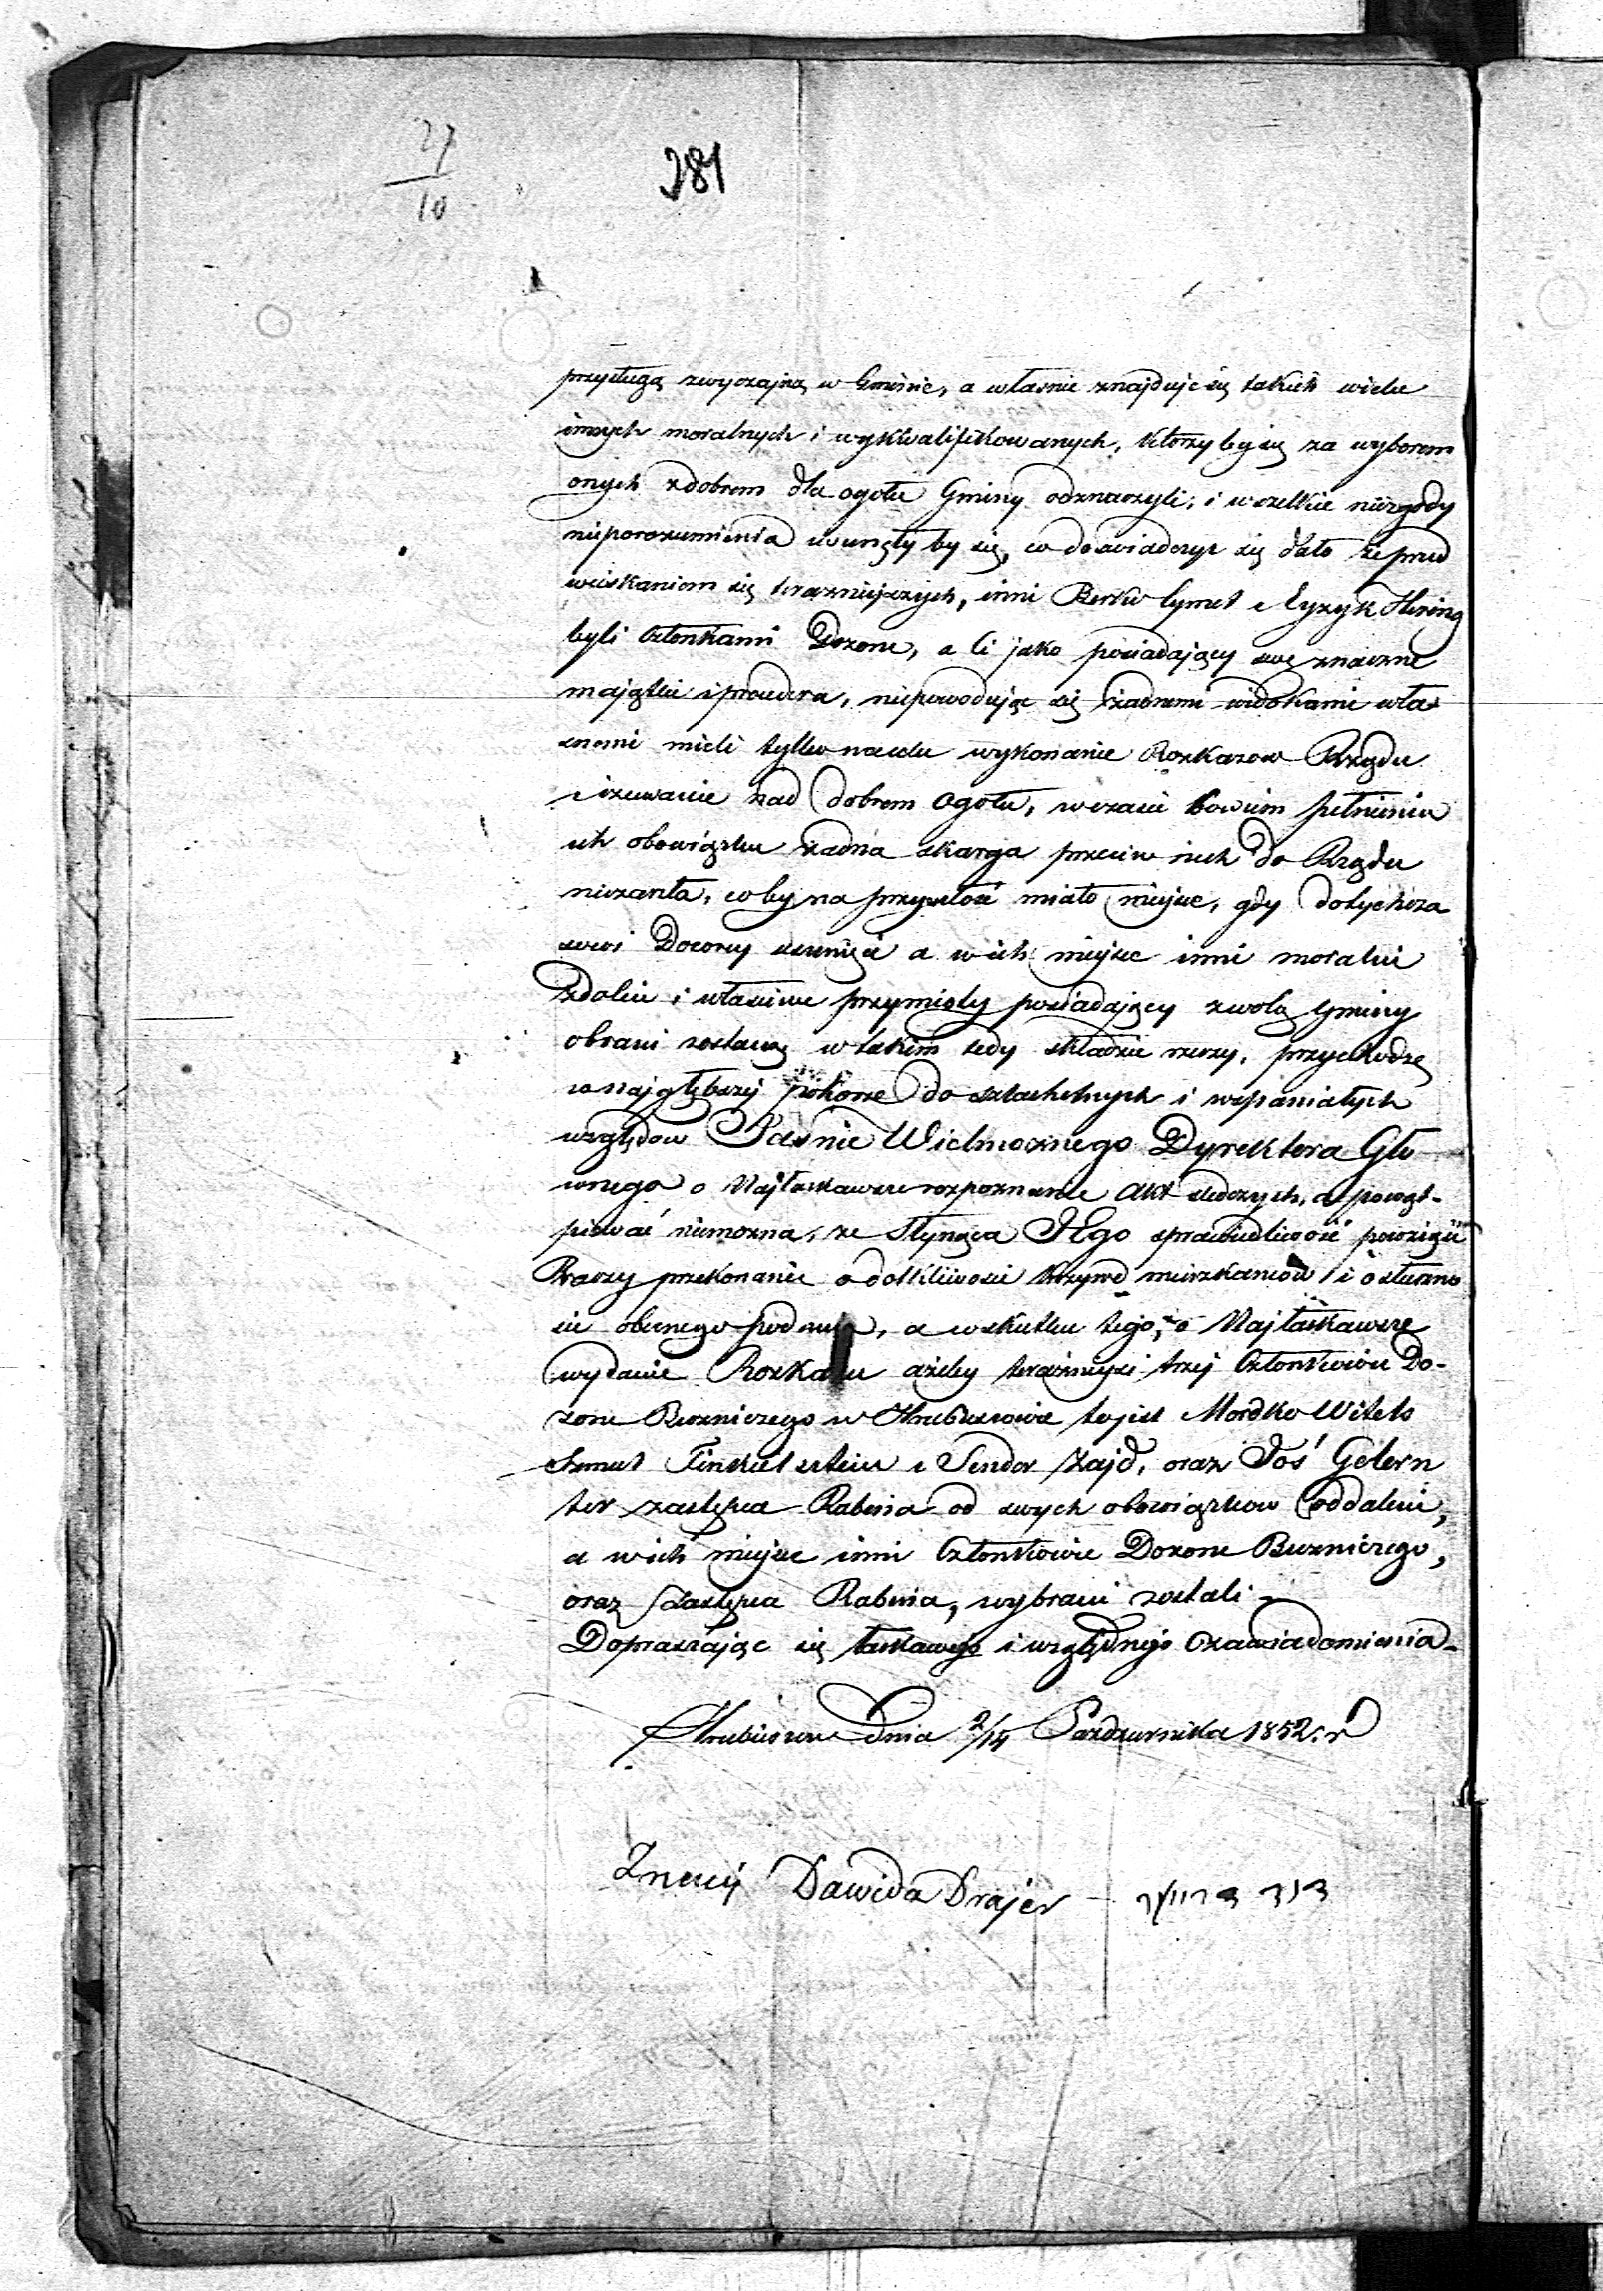 27
10
281
przysługą zwyczajną w Gminie, a własnie znajduje się takich wielu
innych moralnych i wykwalifikowanych, którzy by się za wyborem
onych z dobrem dla ogołu Gminy odznaczyli, i wszelkie niezgody
nieporozumienia usunęły by się, co doswiadczyć się dało że przed
wciskaniem się teraznieyszych, inni Berko Cymet i Eyzyk Hering
byli Członkami Dozoru, a ci jako posiadający swe znaczne
majątki i procedera, niepowodując się żadnemi widokami wła-
snemi mieli tylko na celu wykonanie Rozkazow Rządu
i czuwanie nad dobrem Ogołu, w czasie bowiem pełnienia
ich obowiązku żadna skarga przeciw nich do Rządu
niezaszła, co by na przyszłość miało miejsce, gdy dotychcza
sowi Dozorcy usunięci a w ich miejsce inni moralni
zdolni i własciwe przymioty posiadający z wolą Gminy
obrani zostaną w takim tedy składzie rzeczy, przychodzę
w najgłębszej pokorze do szlachetnych i wspaniałych
względow Jasnie Wielmoznego Dyrektora Głó
wnego o Najłaskawsze rozpoznanie Akt sledczych, a powąt-
piewać niemozna, ze Słynąca JEgo sprawiedliwość powziąść
Raczy przekonanie o dotkliwości krzywd mieszkancow i o słuszno
ści obecnego podania, a w skutku tego, o Najłaskawsze
wydanie Rozkazu ażeby teraźnieysi trzej Członkowie Do-
zoru Bużniczego w Hrubieszowie to jest Mordko Witels
Szmul Finkielsztein i Sendor Zajd, oraz Joś Gelern
ter zastępca Rabina od swych obowiązkow oddaleni,
a w ich miejsce inni Członkowie Dozoru Bużniczego,
oraz Zastępca Rabina, wybrani zostali –
Dopraszając się łaskawego i względnego Ozawiadomienia –
Hrubieszow dnia 2/14 Pazdziernika 1852. r
Dawida Drajer – דוד דרייער